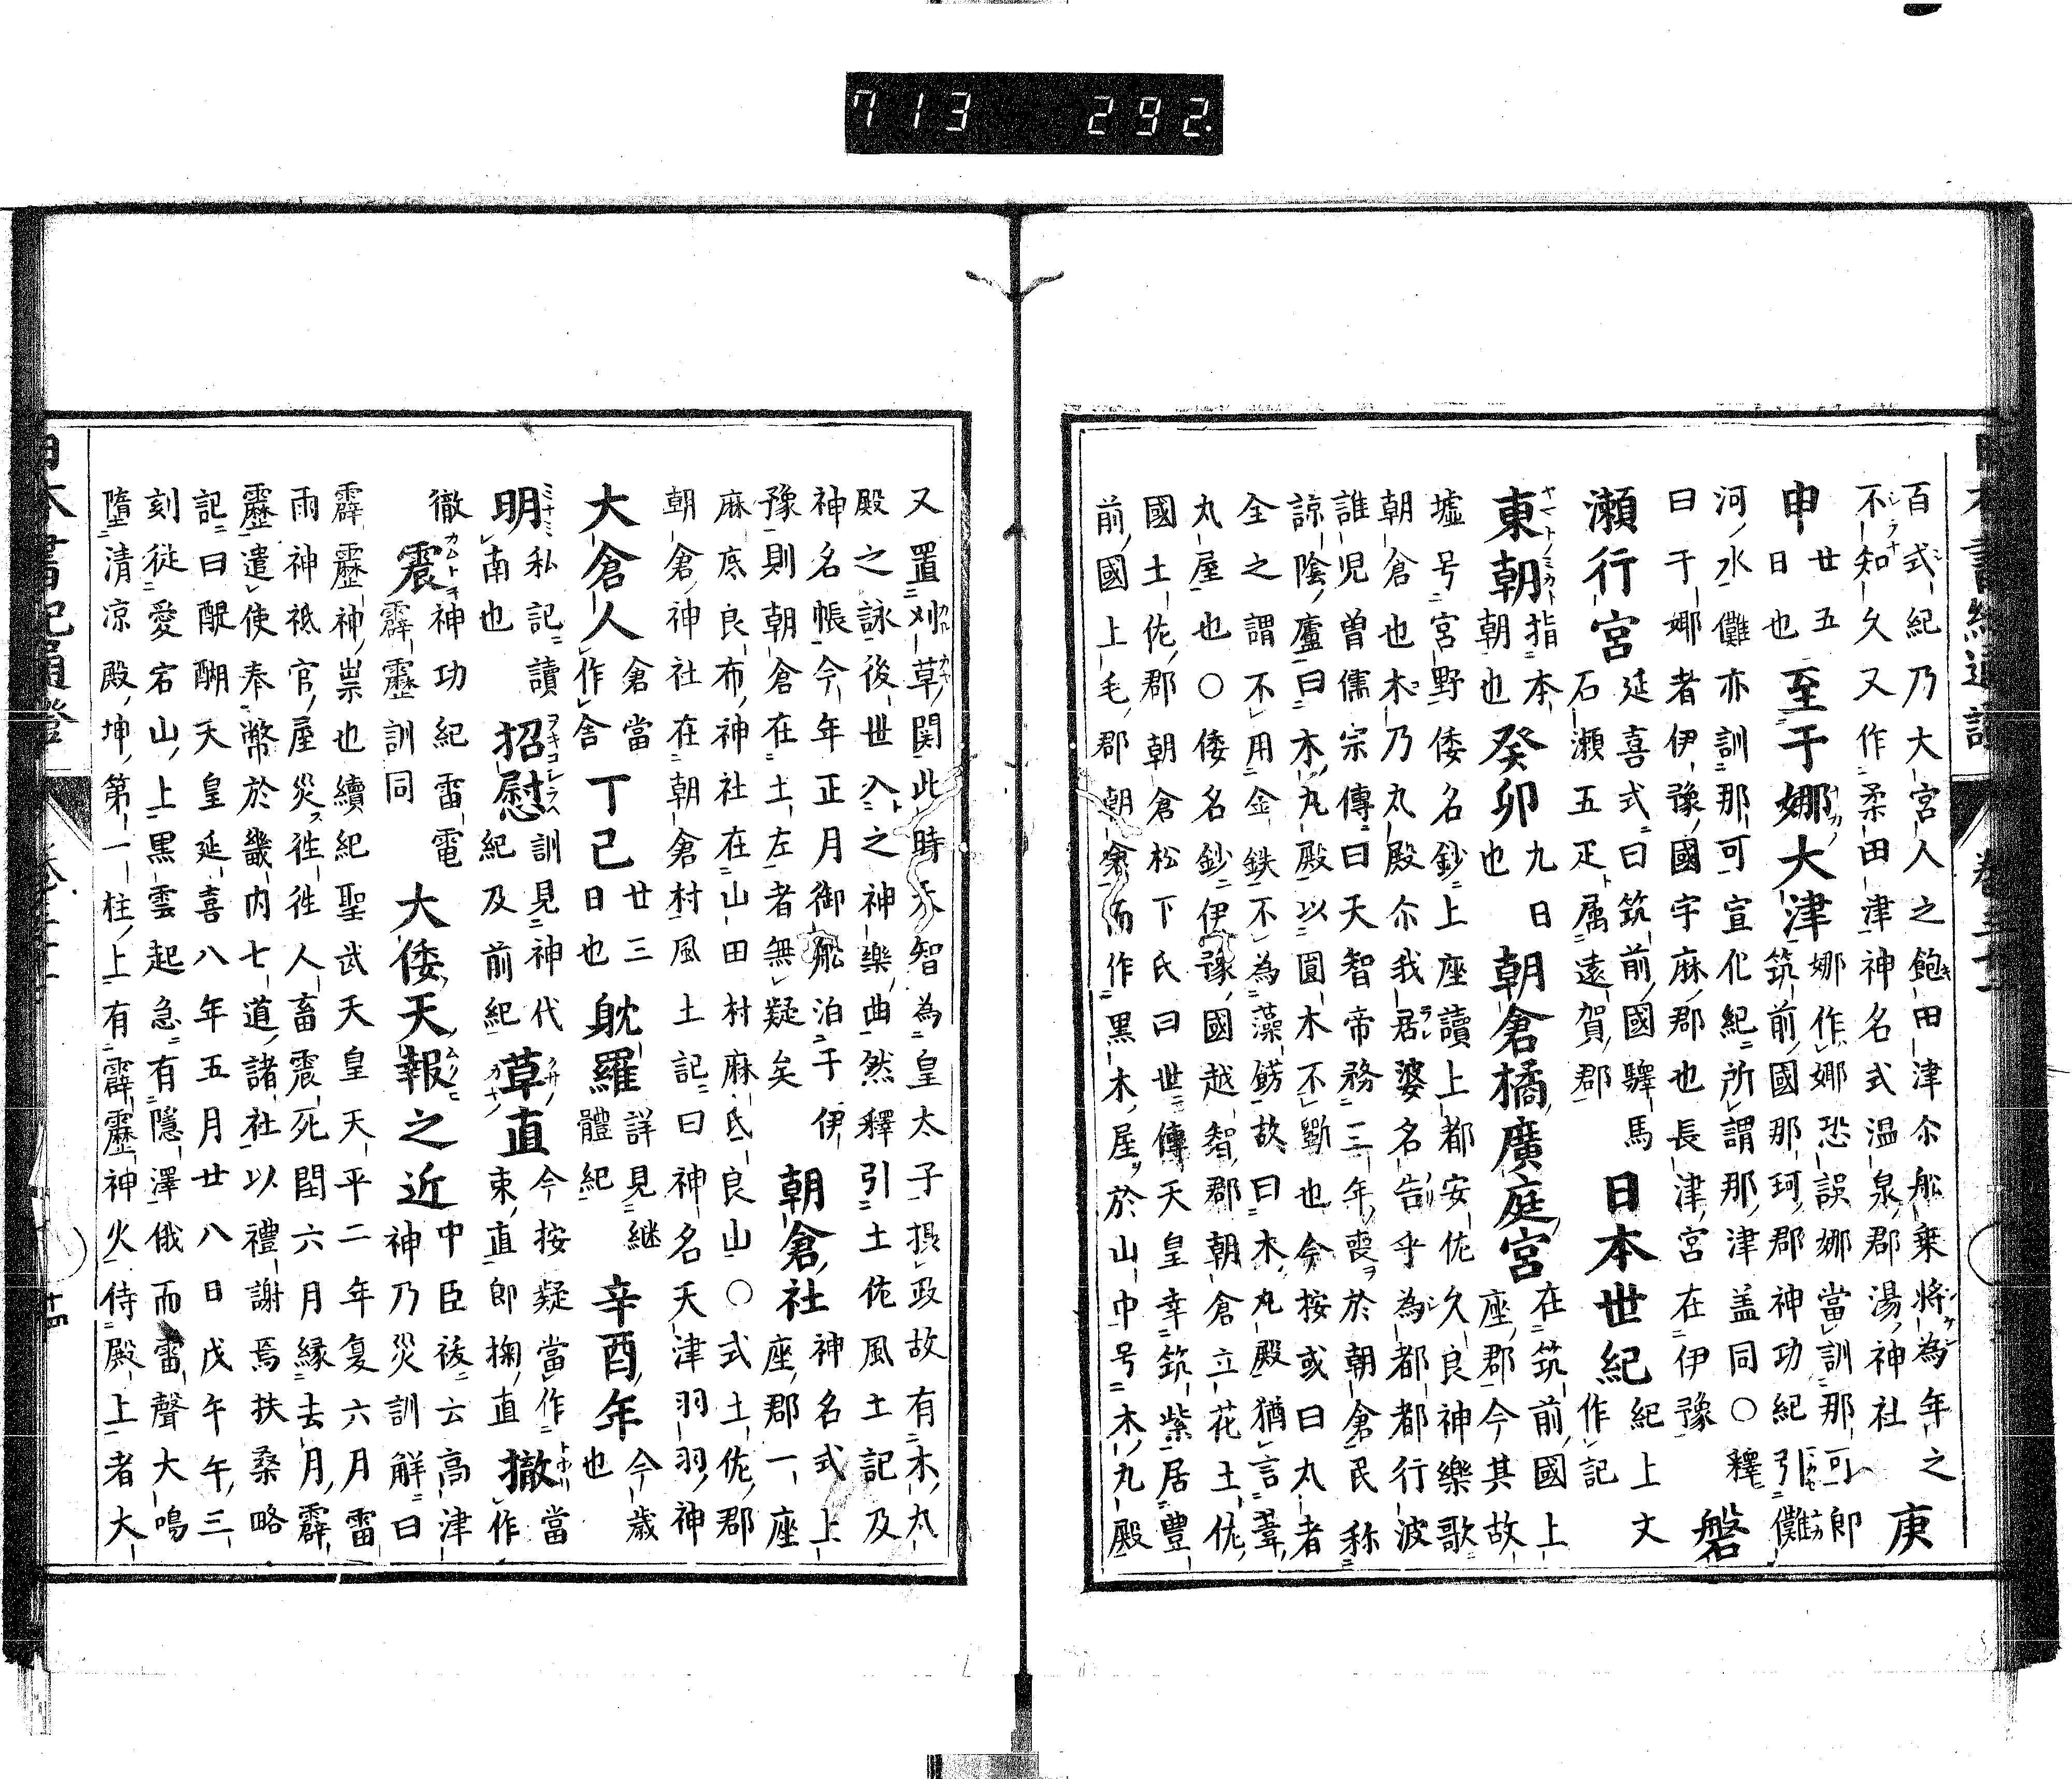 713 292.
百式紀乃大宮人之飽田津尓舩乗将為年之
不知久又作柔田津神名式温泉郡湯神社
庚
申
廿五
日也
至于娜大津
娜作娜恐誤娜當訓那可郎
筑前國那珂郡神功紀引儺
河水儺亦訓那可宣化紀所謂那津盖同○釋
曰于娜者伊豫國宇麻郡也長津宮在伊豫
磐
瀬行宮
延喜式曰筑前國驛馬
石瀬五疋属遠賀郡
日本世紀
紀上文
作記
東朝
指本
朝也
癸卯
九日
也
朝倉橘廣庭宮
在筑前國上
座郡今其故
墟号宮野倭名鈔上座讀上都安佐久良神樂歌
朝倉也木乃丸殿尓我居婆名告乎為都都行波
誰児曽儒宗傳曰天智帝務三年喪於朝倉民称
諒陰廬曰木丸殿以圓木不斵也今按或曰丸者
全之謂不用金鉄不為藻鎊故曰木丸殿猶言葺
丸屋也○倭名鈔伊豫國越智郡朝倉立花土佐
國土佐郡朝倉松下氏曰世傳天皇幸筑紫居豊
前國上毛郡朝倉而作黒木屋於山中号木丸殿
又置刈草関此時天智為皇太子摂政故有木丸
殿之詠後世入之神樂曲然釋引土佐風土記及
神名帳今年正月御舩泊于伊
豫則朝倉在土左者無疑矣
朝倉社
神名式上
座郡一座
麻底良布神社在山田村麻氐良山○式土佐郡
朝倉神社在朝倉村風土記曰神名天津羽羽神
大倉人
倉當
作舎
丁巳
廿三
日也
耽羅
詳見継
體紀
辛酉年
今歳
也
明
私記讀
南也
招慰
訓見神代
紀及前紀
草直
今按疑當作
束直郎掬直
撤
當作
徹
震
神功紀雷電
霹靂訓同
大倭天報之近
中臣祓云高津
神乃災訓解曰
霹靂神祟也續紀聖武天皇天平二年复六月雷
雨神祇官屋災徃徃人畜震死閏六月縁去月霹
靂遣使奉幣於畿内七道諸社以禮謝焉扶桑略
記曰醍醐天皇延喜八年五月廿八日戊午午三
刻従愛宕山上黒雲起急有隱澤俄而雷聲大鳴
墮清凉殿坤第一柱上有霹靂神火侍殿上者大